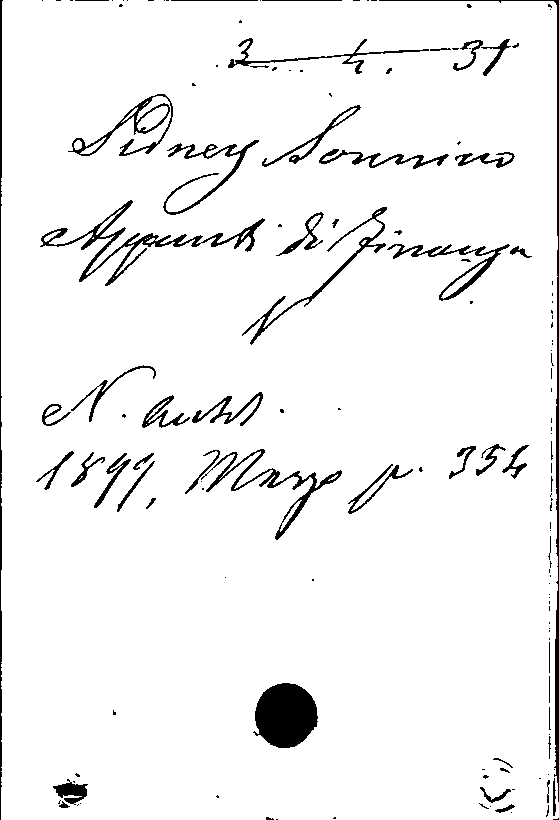 3. 4. 31
Sidney Sonnino
Appunti di Finanza
N. Antol.
1899, Marzo p. 354